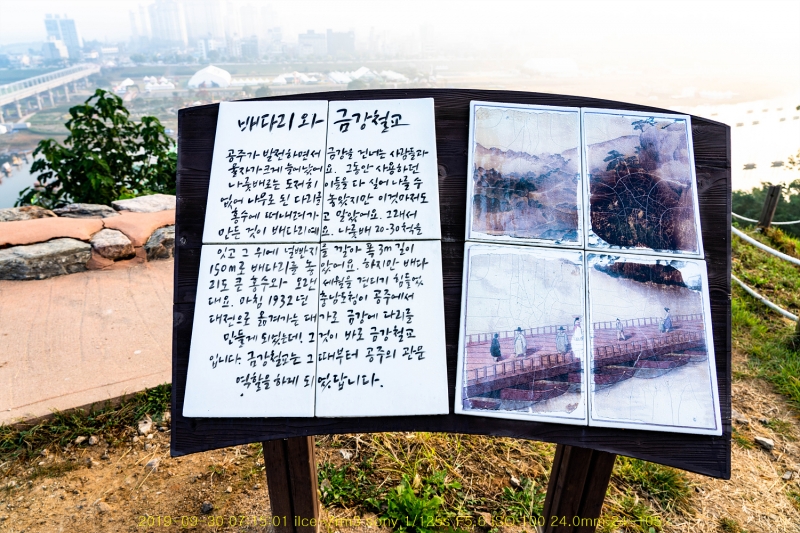 배다리와 금강철교
공주가 발전하면서 금강을 건너는 사람들과
물자가 크게 늘어났어요. 그동안 사용하던
나룻배로는 도저히 이들을 다 실어 나를 수
없어 나무로 된 다리를 놓았지만 이것마저도
홍수에 떠내려가고 말았어요. 그래서
만든 것이 배다리예요. 나룻배 20-30척을
잇고 그 위에 널빤지를 깔아 폭 3m 길이
150m로 배다리를 놓았어요. 하지만 배다
리도 큰 홍수와 오랜 세월을 견디기 힘들었
대요. 마침 1932년 충남도청이 공주에서
대전으로 옮겨가는 대가로 금강에 다리를
만들게 되었는데! 그것이 바로 금강철교
입니다. 금강철교는 그때부터 공주의 관문
역할을 하게 되었답니다.
2019 09 30 07